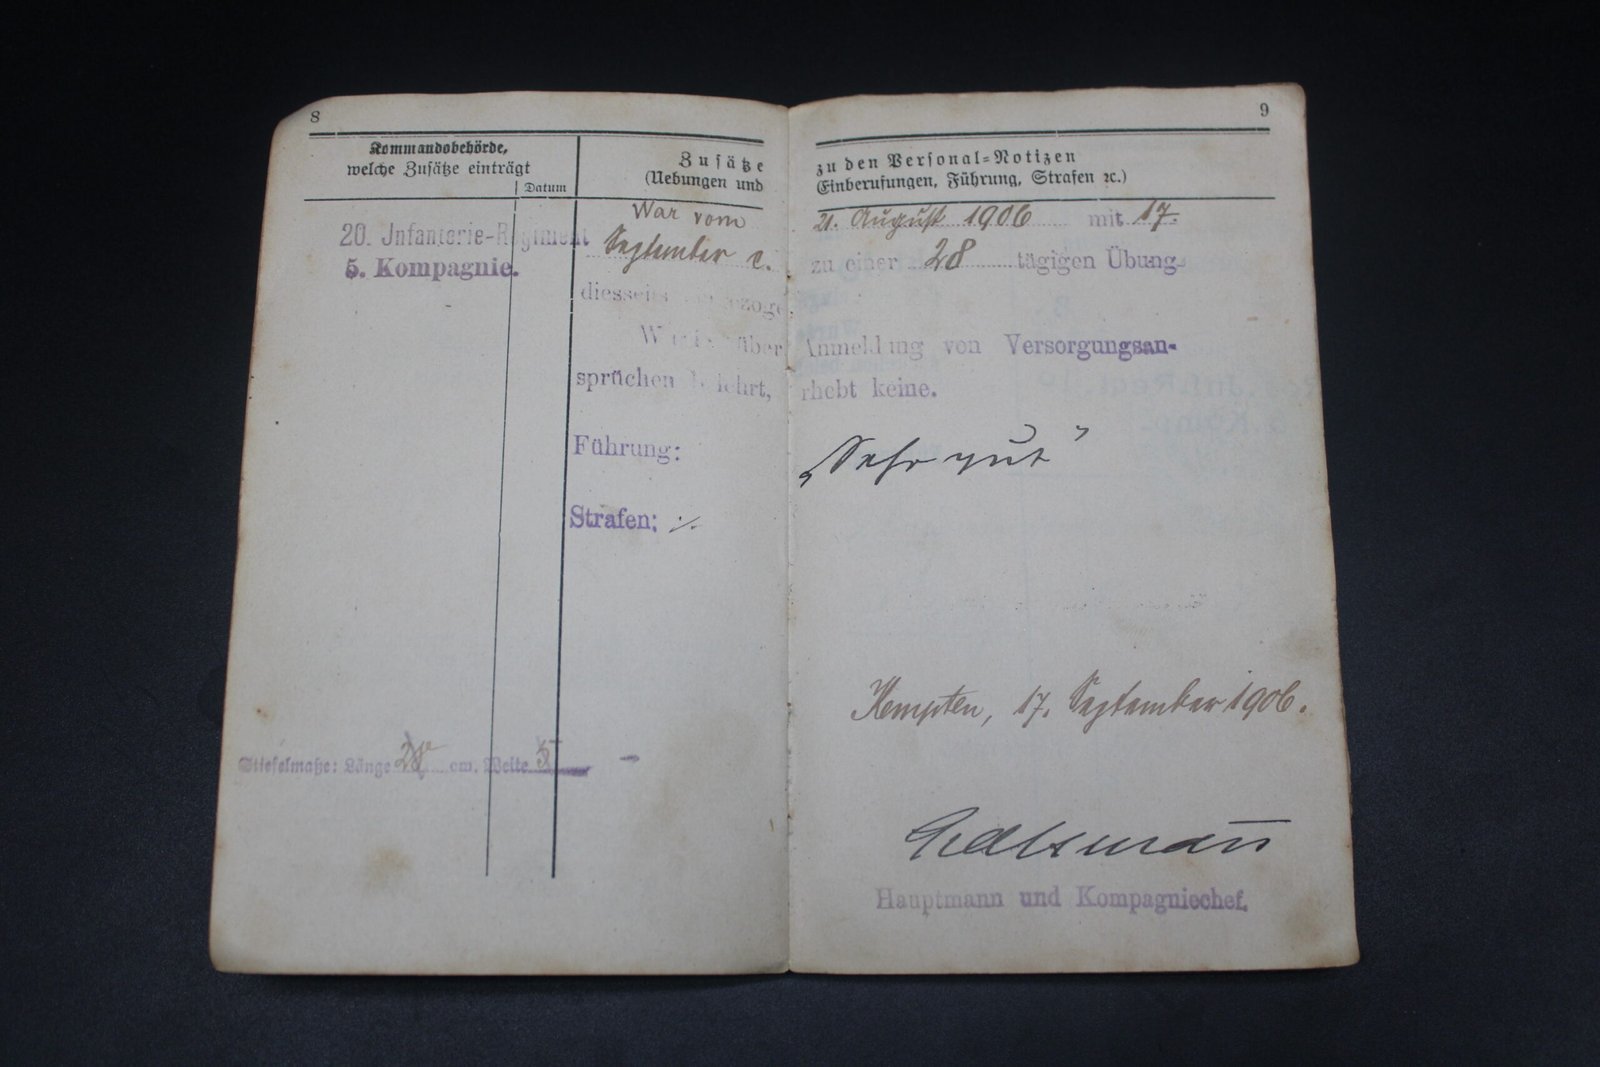 8
Kommandobehörde,
welche Zusätze einträgt
Datum
Zusätze
(Uebungen und
20. Infanterie-Regiment
5. Kompagnie.
War vom
September c.
diesseits
über
sprüchen belehrt,
Führung:
Strafen: ·/.
Stiefelmaße: Länge 28 cm. Weite 5
9
zu den Personal-Notizen
Einberufungen, Führung, Strafen ꝛc.)
21. August 1906 mit 17.
zu einer 28 tägigen Übung
Anmeldung von Versorgungsan-
rhebt keine.
„Sehr gut"
Kempten, 17. September 1906.
Hauptmann und Kompagniechef.